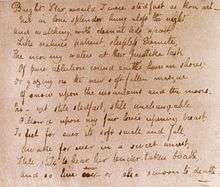 Bright Star, would I were stedfast as thou art—
Not in lone splendor hung aloft the night
and watching, with eternal lids apart,
Like nature's patient, sleepless Eremite,
The morning waters at their priestlike task
Of pure ablution round earth's human shores;
or gazing on the new soft-fallen masque
of snow upon the mountains and the moors.
No yet still stedfast, still unchangeable
Pillow'd upon my fair love's ripening breast,
To feel for ever its soft swell and fall,
Awake for ever in a sweet unrest,
Still, still to hear her tender-taken breath
and so live ever or else swoon to death